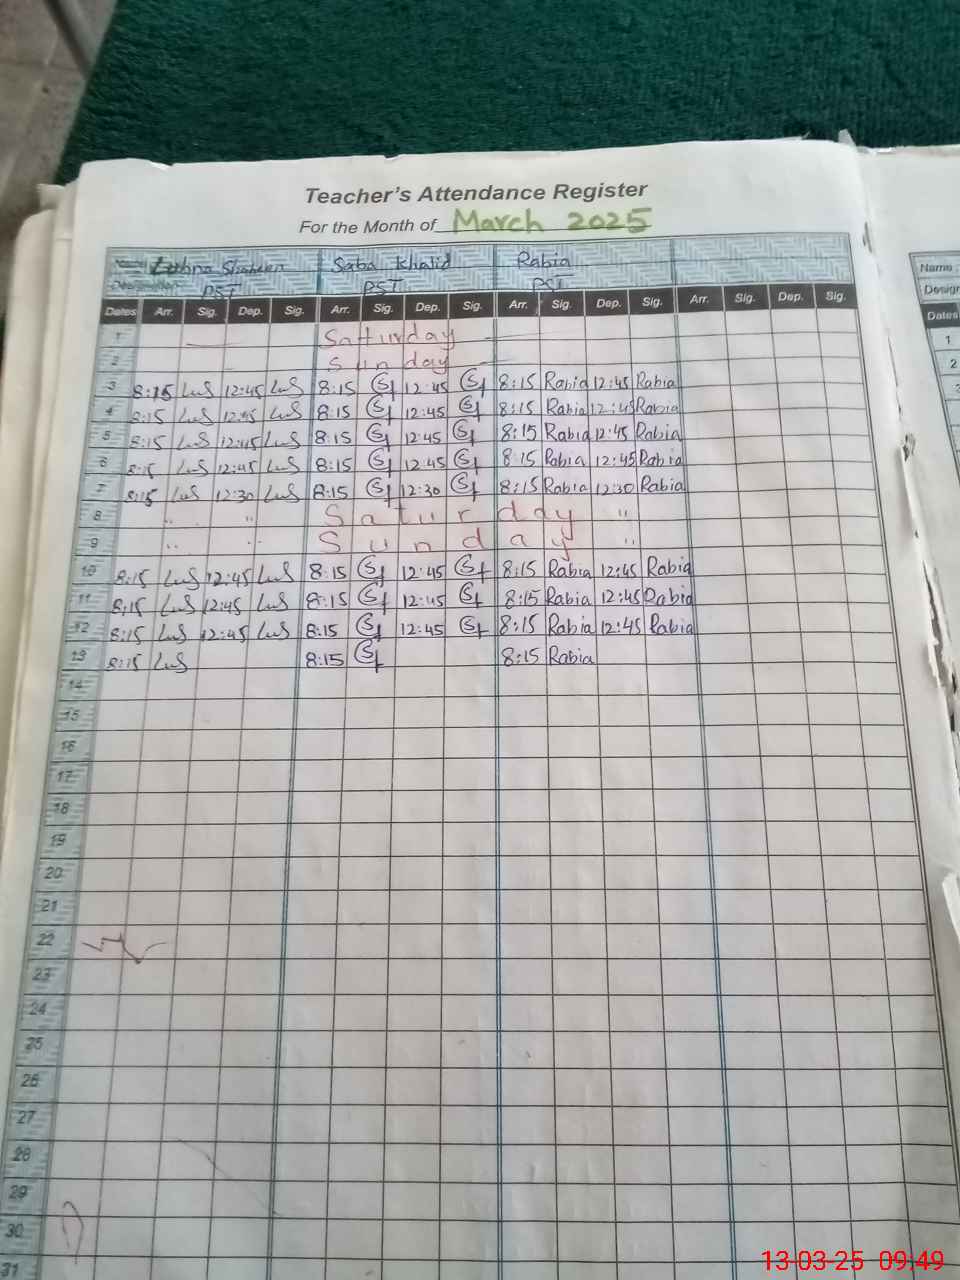 Teacher's Attendance Register
For the Month of March 2025
Name Lubna Shaheen Saba Khalid Rabia
Designation PST PST PST
Dates Arr. Sig. Dep. Sig. Arr. Sig. Dep. Sig. Arr. Sig. Dep. Sig. Arr. Sig. Dep. Sig.
1 Saturday
2 Sunday
3 8:15 LuS 12:45 LuS 8:15 12:45 8:15 Rabia 12:45 Rabia
4 8:15 LuS 12:45 LuS 8:15 12:45 8:15 Rabia 12:45 Rabia
5 8:15 LuS 12:45 LuS 8:15 12:45 8:15 Rabia 12:45 Rabia
6 8:15 LuS 12:45 LuS 8:15 12:45 8:15 Rabia 12:45 Rabia
7 8:15 LuS 12:30 LuS 8:15 12:30 8:15 Rabia 12:30 Rabia
8 " " Saturday "
9 " " Sunday "
10 8:15 LuS 12:45 LuS 8:15 12:45 8:15 Rabia 12:45 Rabia
11 8:15 LuS 12:45 LuS 8:15 12:45 8:15 Rabia 12:45 Rabia
12 8:15 LuS 12:45 LuS 8:15 12:45 8:15 Rabia 12:45 Rabia
13 8:15 LuS 8:15 8:15 Rabia
14
15
16
17
18
19
20
21
22
23
24
25
26
27
28
29
30
31
Name :
Design
Dates
1
2
3
13-03-25 09:49